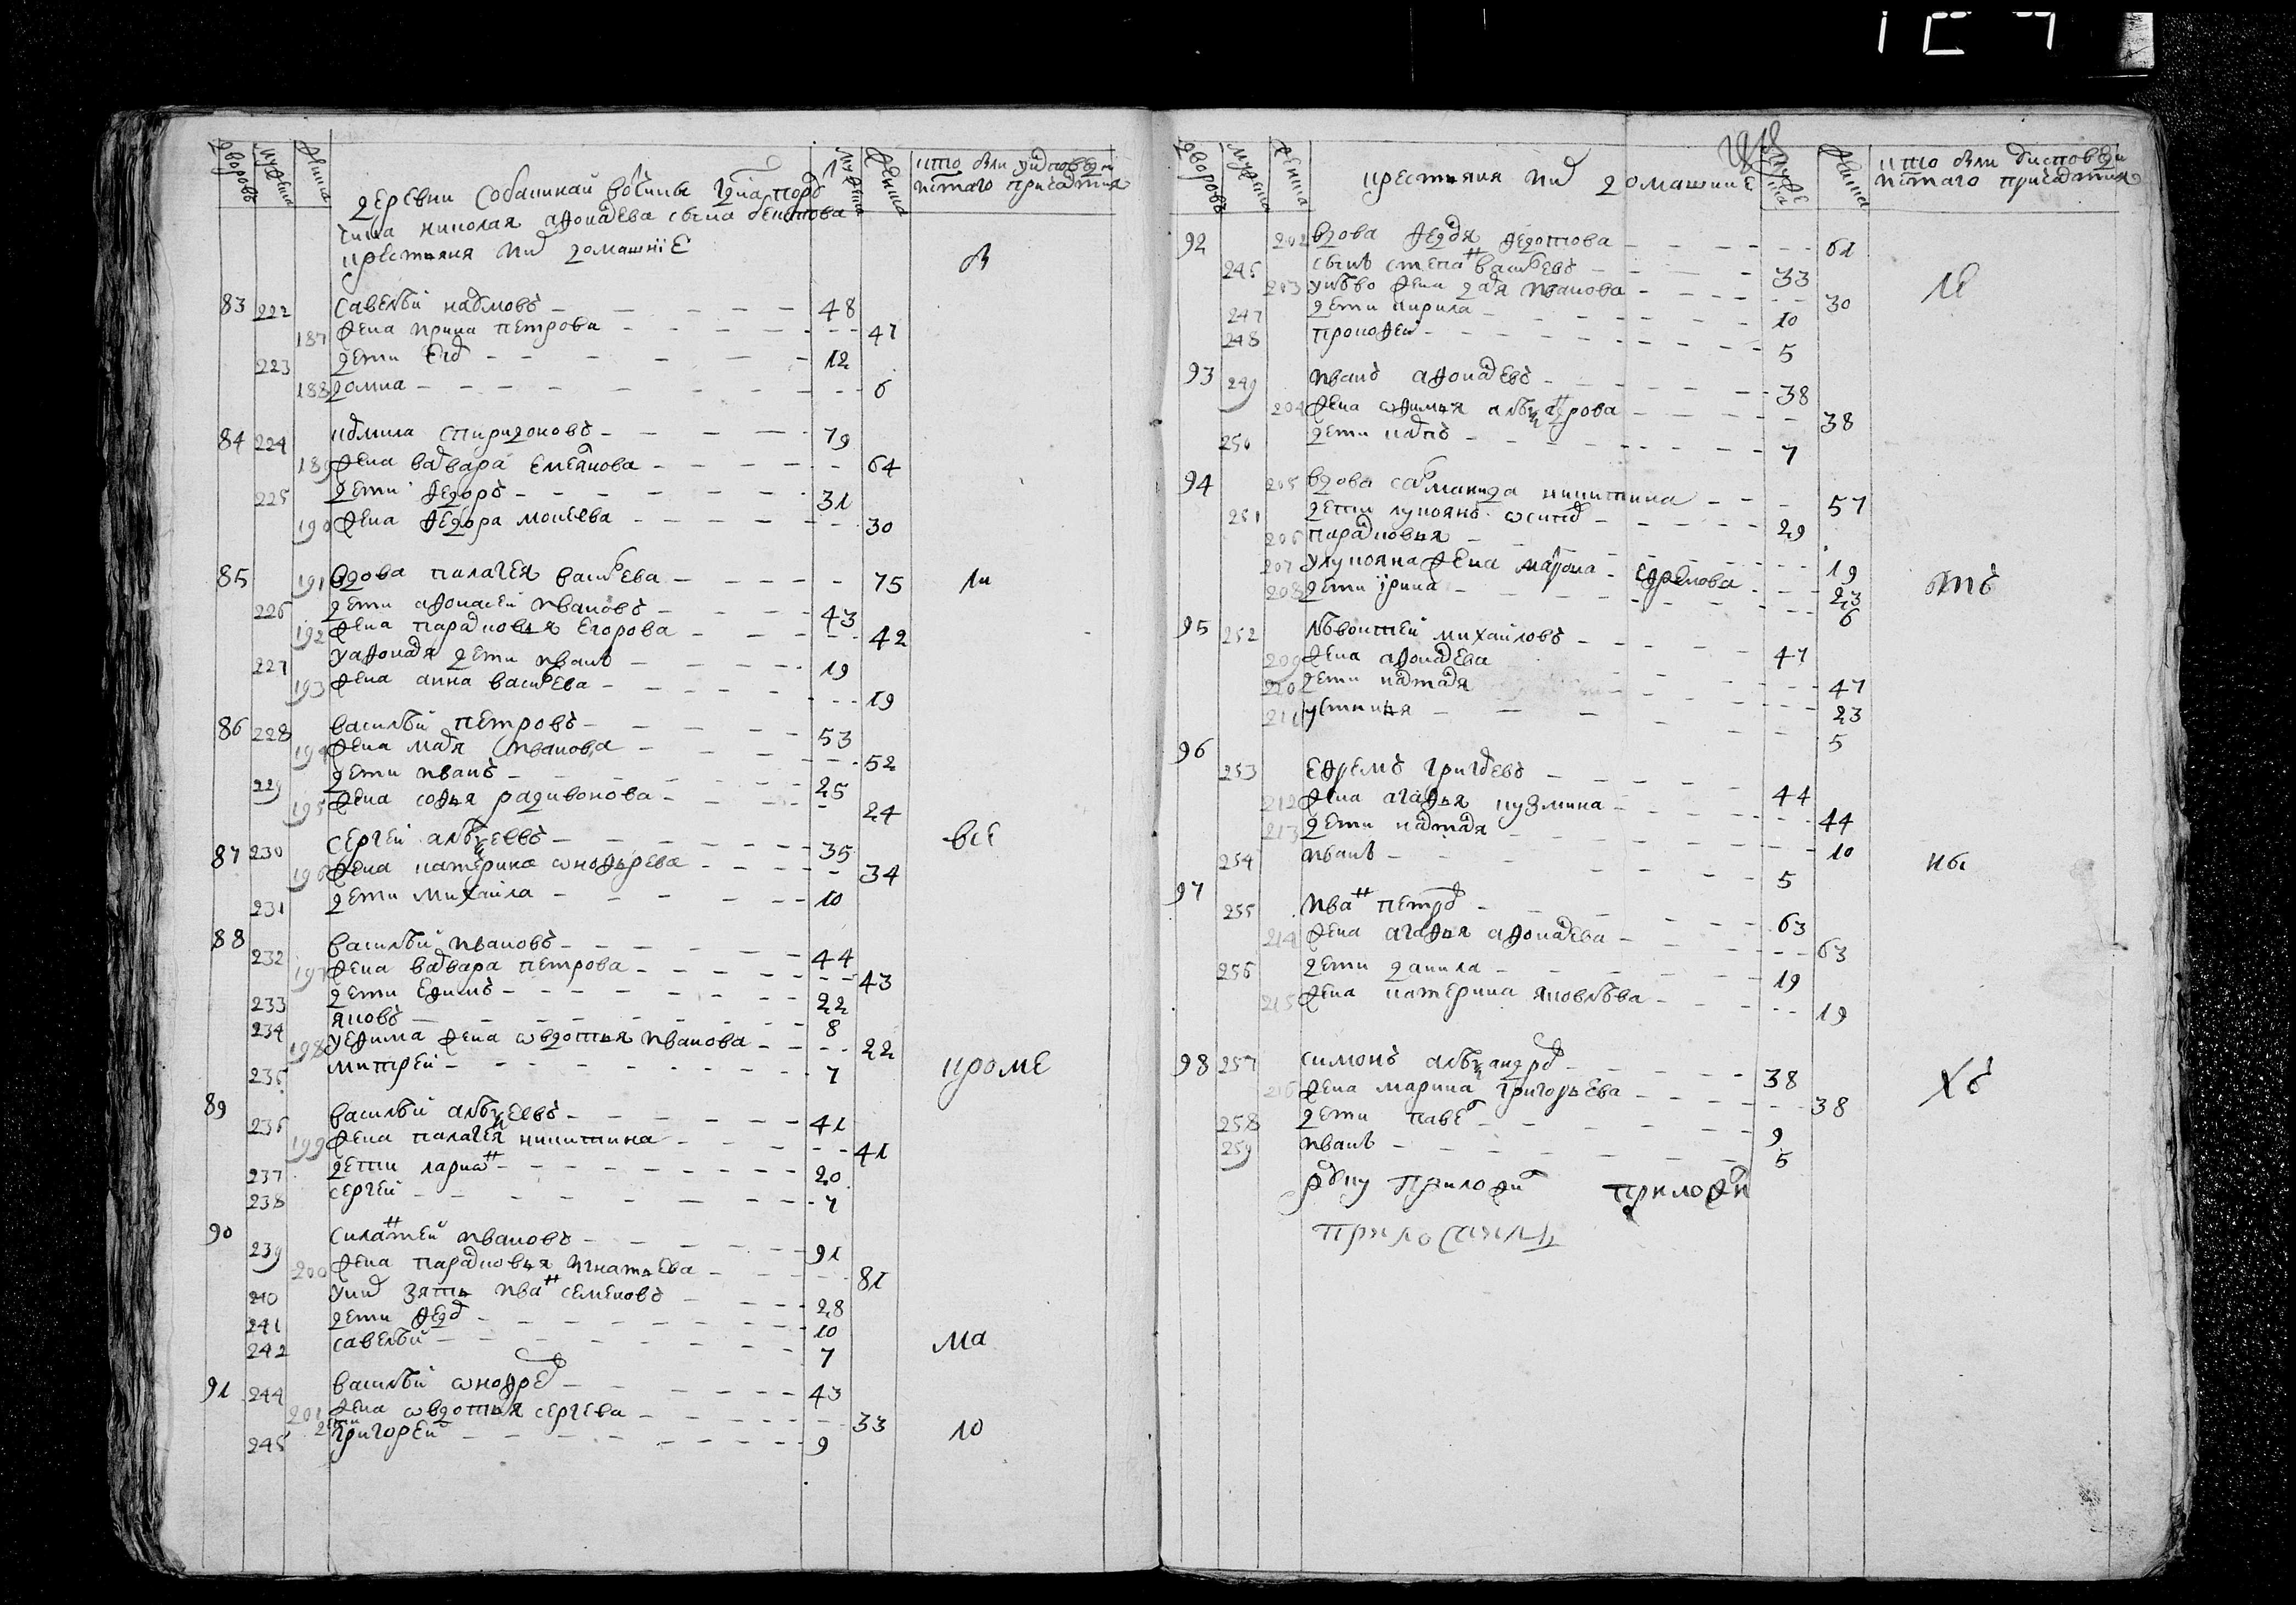 дворовъ мужска женска мужска женска кто были у исповеди и статаго причастия
деревни Собакиной вотчины
Николая Афонасьева сына
крестьяня и их домашние
83 222 Савелей Наумовъ 48
187 жена Ирина Петрова 47
223 дети Егоръ 12
188 Домна 6
84 224 Спиридоновъ 79
189 жена Варвара Емельянова 64
225 дети Федоръ 31
190 жена Федора Моисеева 30
85 191 вдова Палагея Васильева 75
226 дети Афонасей Ивановъ 43
192 жена Парасковья Егорова 42
227 у Афонасья дети Иванъ 19
193 жена Анна Васильева 19
86 228 Василей Петровъ 53
194 жена Марья Иванова 52
229 дети Иванъ 25
195 жена Софья Радивонова 24
87 230 Сергей Алексеевъ 35
196 жена Катерина Онофрева 34
231 дети Михаила 10
88 232 Василей Ивановъ 44
197 жена Варвара Петрова 43
233 дети Ефимъ 22
234 Яковъ 8
198 у Ефима жена Овдотья Иванова 22
235 Митрей 7
89 236 Василей Алексеевъ 41
199 жена Палагея Никитина 41
237 дети Ларион 20
238 Сергей 7
90 239 Силантей Ивановъ 91
200 жена Парасковья Игнатьева 81
240 у них зять Иван Семеновъ 28
241 дети Федор 10
242 Савелей 7
91 244 Василей Онофреев 43
201 жена Овдотья Сергева 33
245 дети Григорей 9
в
ли
все
кроме
ма
ю
дворовъ мужска женска крестьяня и их домашние мужска женска кто были у исповеди и статаго причастия
92 202 вдова Федосья Федотова 61
246 сынъ Степан Васильевъ 33
203 у него жена Дарья Иванова 30
247 дети Кирила 10
248 Прокофей 5
93 249 Иванъ Афонасьевъ 38
204 жена Офимья Александрова 38
250 дети Карпъ 7
94 205 вдова Соломанида Никитина 57
251 дети Лупоянъ Осипов 29
206 Парасковья 19
207 у Лупояна жена Матрона Ефремова 23
208 дети Ирина 6
95 252 Левонтей Михайловъ 47
209 жена Афонасьева 47
210 дети Настасья 23
211 Устинья 5
96 253 Ефремъ Григорьевъ 44
212 жена Агафья Кузмина 44
213 дети Настасья 10
254 Иванъ 5
97 255 Иван Петров 63
214 жена Агафья Афонасьева 63
256 дети Данила 19
215 жена Катерина Яковлева 19
98 257 Симонъ Александров 38
216 жена Марина Григорьева 38
258 дети Павел 9
259 Иванъ 5
руку приложил приложил
ле
ны
хъ